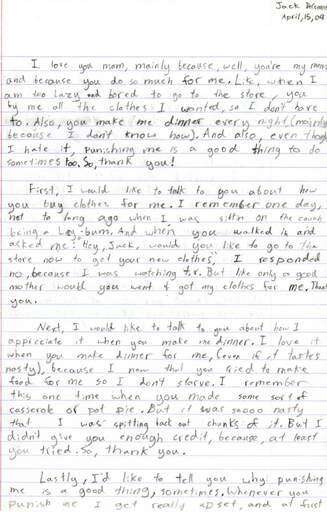 Jack
April, 15, 09
I love you mom, mainly because, well, you're my mom
and because you do so much for me. Like, when I
am too lazy and bored to go to the store, you
by me all the clothes I wanted, so I don't have
to. Also, you make me dinner every night (mainly
because I don't know how). And also, even though
I hate it, punishing me is a good thing to do
sometimes too. So, thank you!
First, I would like to talk to you about how
you buy clothes for me. I remember one day,
not to long ago when I was sittn on the couch
being a lazy-bum. And when you walked in and
asked me: "Hey, Jack, would you like to go to the
store now to get your new clothes," I responded
no, because I was watching tv. But like only a good
mother would you went & got my clothes for me. Thank
you.
Next, I would like to talk to you about how I
appriciate it when you make me dinner. I love it
when you make dinner for me, (even if it tastes
nasty), because I now that you tried to make
food for me so I don't starve. I remember
this one time when you made some sort of
casserole or pot pie. But it was sooo nasty
that I was spitting back out chunks of it. But I
didn't give you enough credit, because, at least
you tried. So, thank you.
Lastly, I'd like to tell you why punishing
me is a good thing, sometimes. Whenever you
punish me I get really upset, and at first